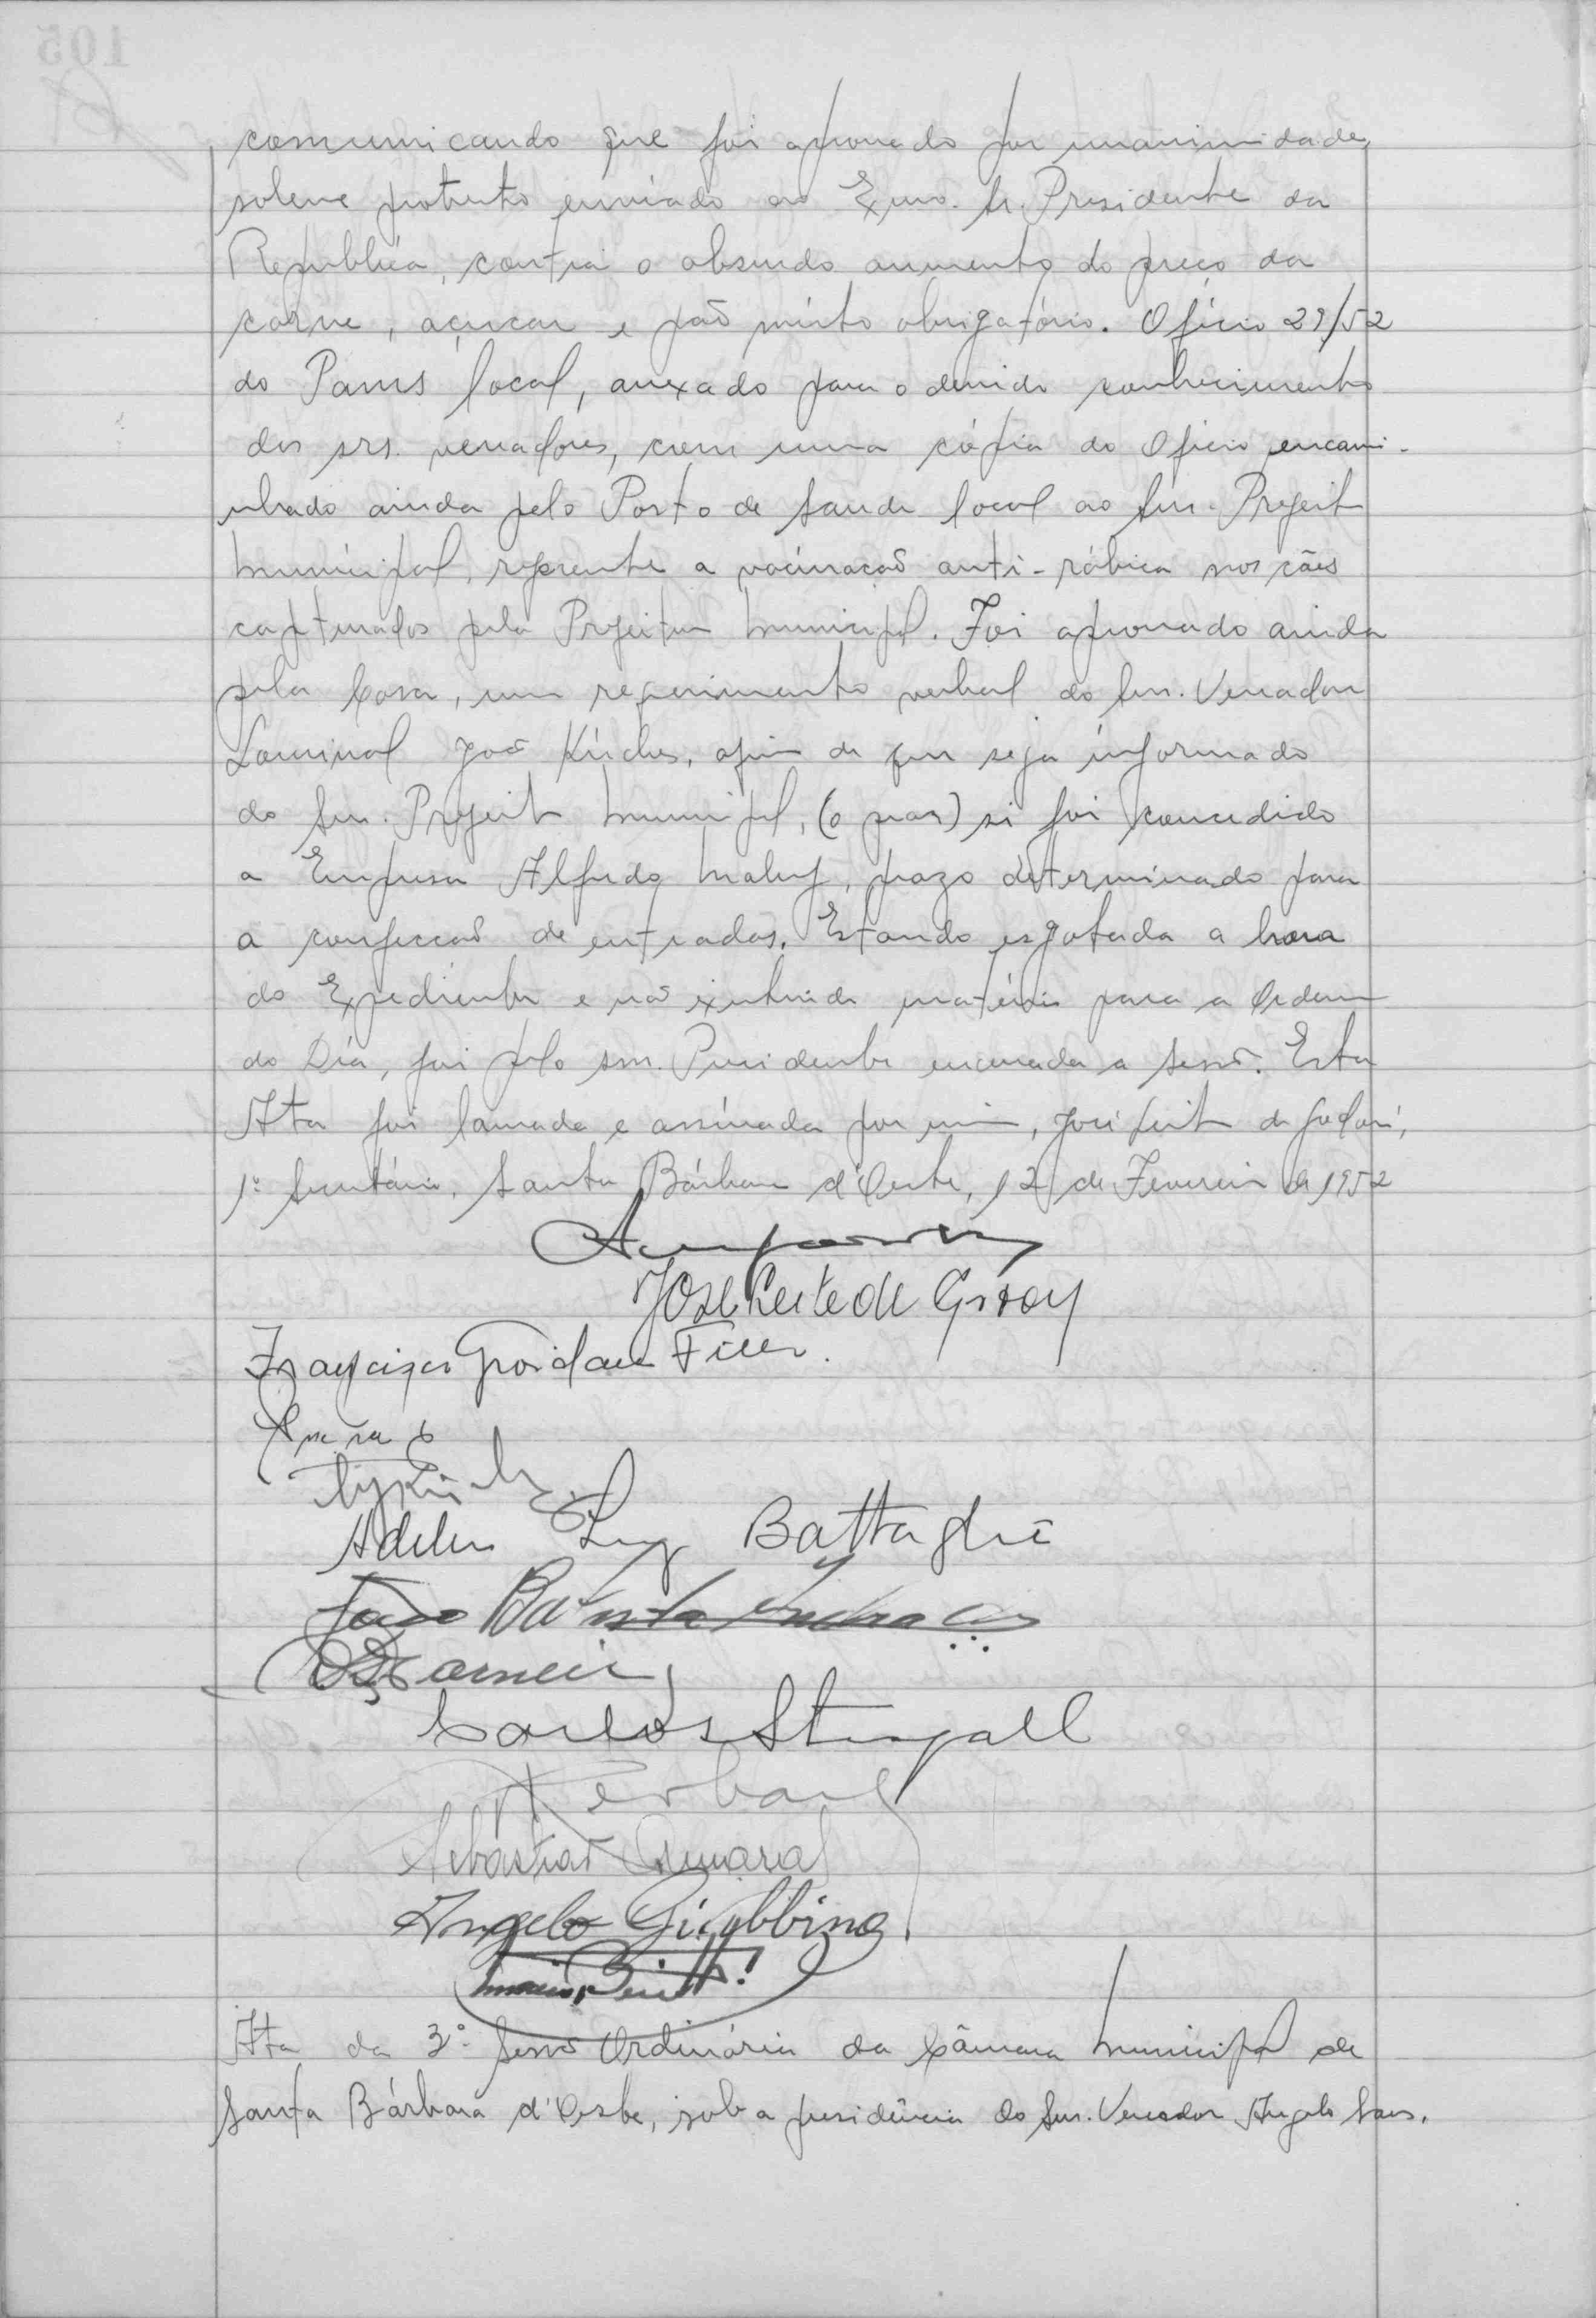 comunicando que foi aprovado por unanimidade,
solene protesto enviado ao Exmo. Sr. Presidente da
Republica, contra o absurdo aumento do preço da
carne, açucar e pão misto obrigatório. Oficio 29/52
do Pams local, anexado para o devido conhecimento
dos srs. vereadores, com uma cópia do Oficio encami-
nhado ainda pelo Posto de Saude local ao Snr. Prefeito
Municipal, referente a vacinação anti-rábica nos cães
capturados pela Prefeitura Municipal. Foi aprovado ainda
pela Casa, um requerimento verbal do Snr. Vereador
Lourival João Kirche, afim de que seja informado
do Snr. Prefeito Municipal, (o praz) si foi concedido
a Empresa Alfredo Maluf, prazo determinado para
a confecção de entradas. Estando esgotada a hora
do Expediente e não existindo matéria para a Ordem
do Dia, foi pelo snr. Presidente encerrada a sessão. Esta
Ata foi lavrada e assinada por mim, José Leite de Godoi,
1º Secretário. Santa Bárbara d'Oeste, 12 de Fevereiro de 1952
José Leite de Godoy
Francisco Giordano Filho.
Battaglia
João Batista
Carlos Steagall
Sebastião Amaral
Angelo Giubbina
Ata da 3º Sessão Ordinária da Câmara Municipal de
Santa Bárbara d'Oeste, sob a presidência do Snr. Vereador Angelo Sans.
105